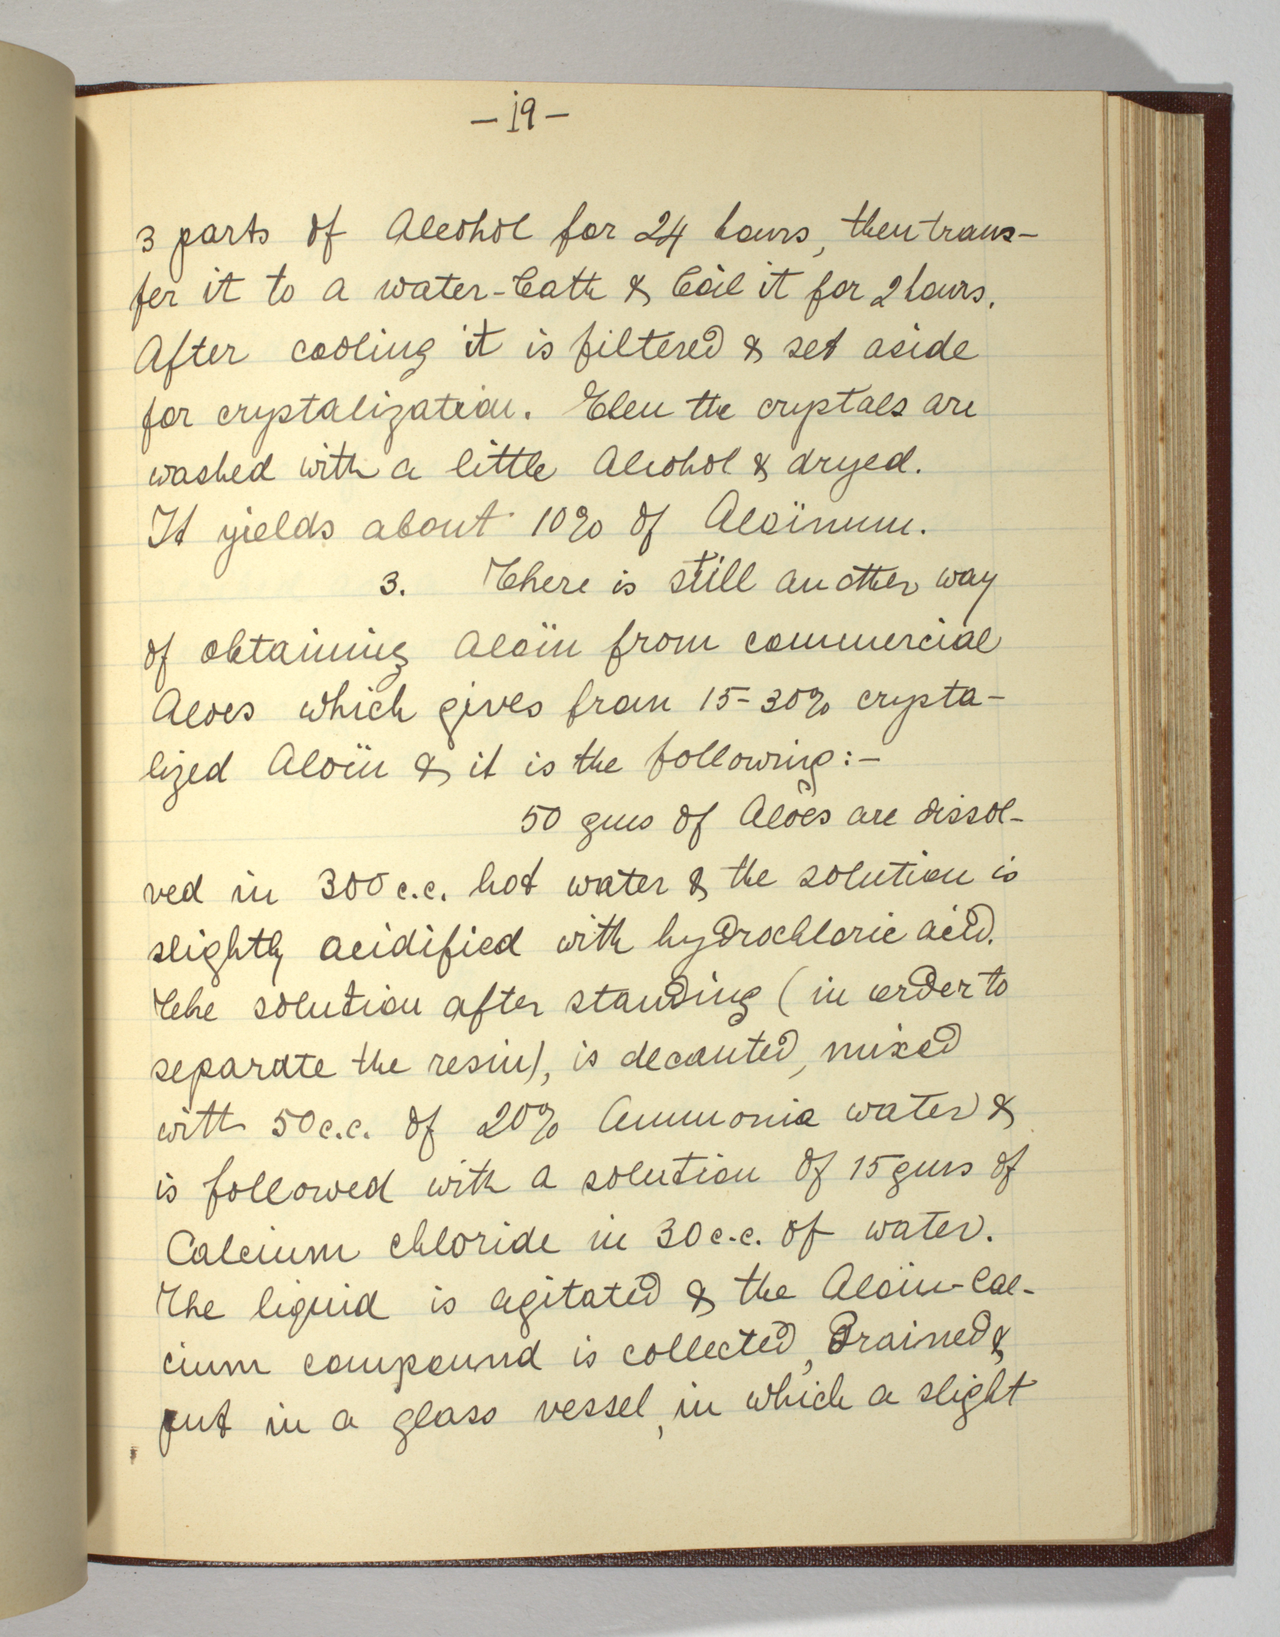 —19—
3 parts of Alcohol for 24 hours, then trans-
fer it to a water-bath & boil it for 2 hours.
After cooling it is filtered & set aside
for crystalization. Then the crystals are
washed with a little Alcohol & dryed.
It yields about 10% of Aloïnum.
3. There is still another way
of obtaining Aloïn from commercial
Aloes which gives from 15-30% crysta-
lized Aloïn & it is the following:-
50 gms of Aloës are dissol-
ved in 300 c.c. hot water & the solution is
slightly acidified with hydrochloric acid.
The solution after standing (in order to
separate the resin), is decanted, mixed
with 50 c.c. of 20% Ammonia water &
is followed with a solution of 15 gms of
Calcium chloride in 30 c.c. of water.
The liquid is agitated & the Aloïn-Cal-
cium compound is collected, Drained &
put in a glass vessel, in which a slight